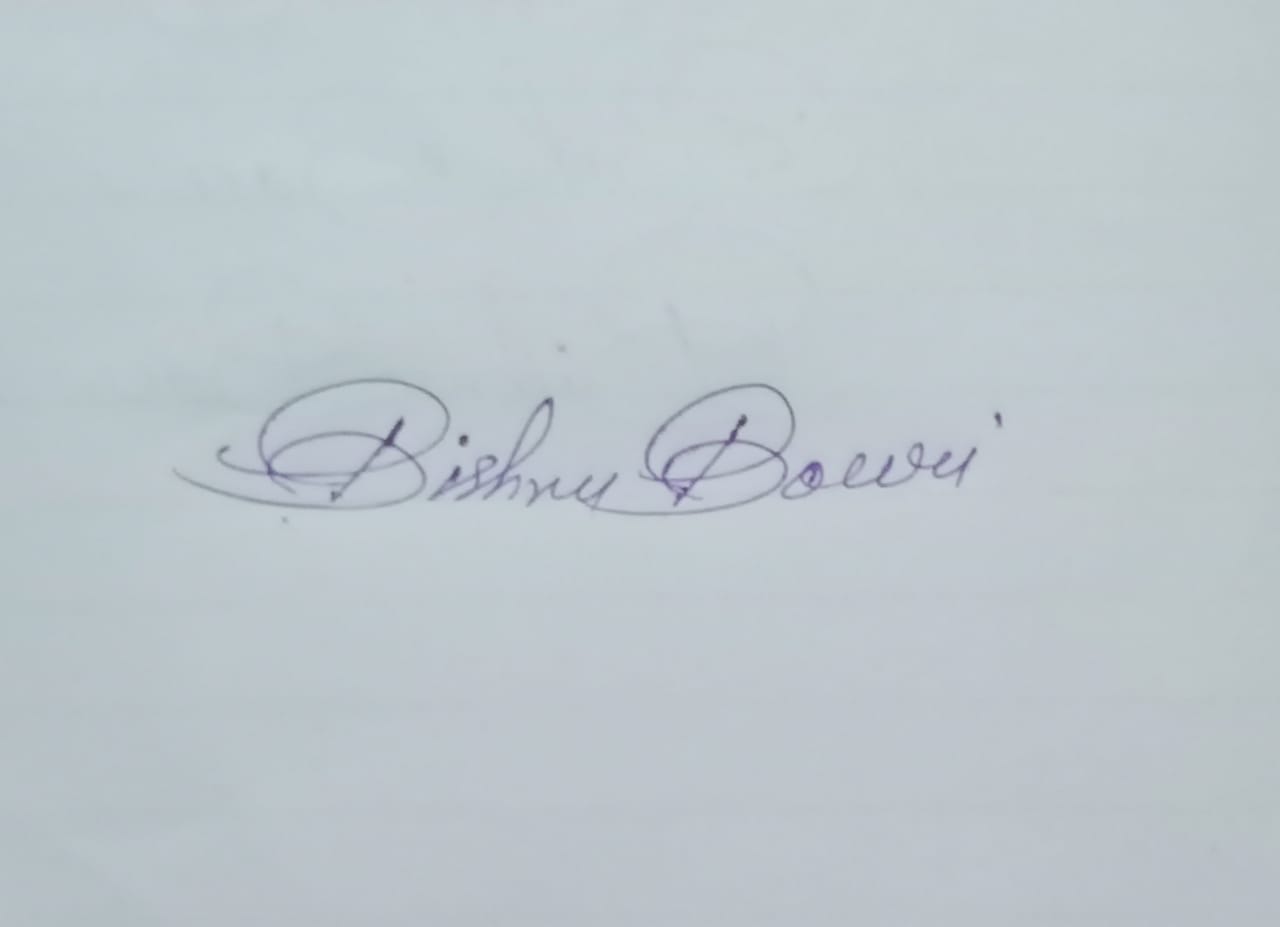 Bishnu Bowri